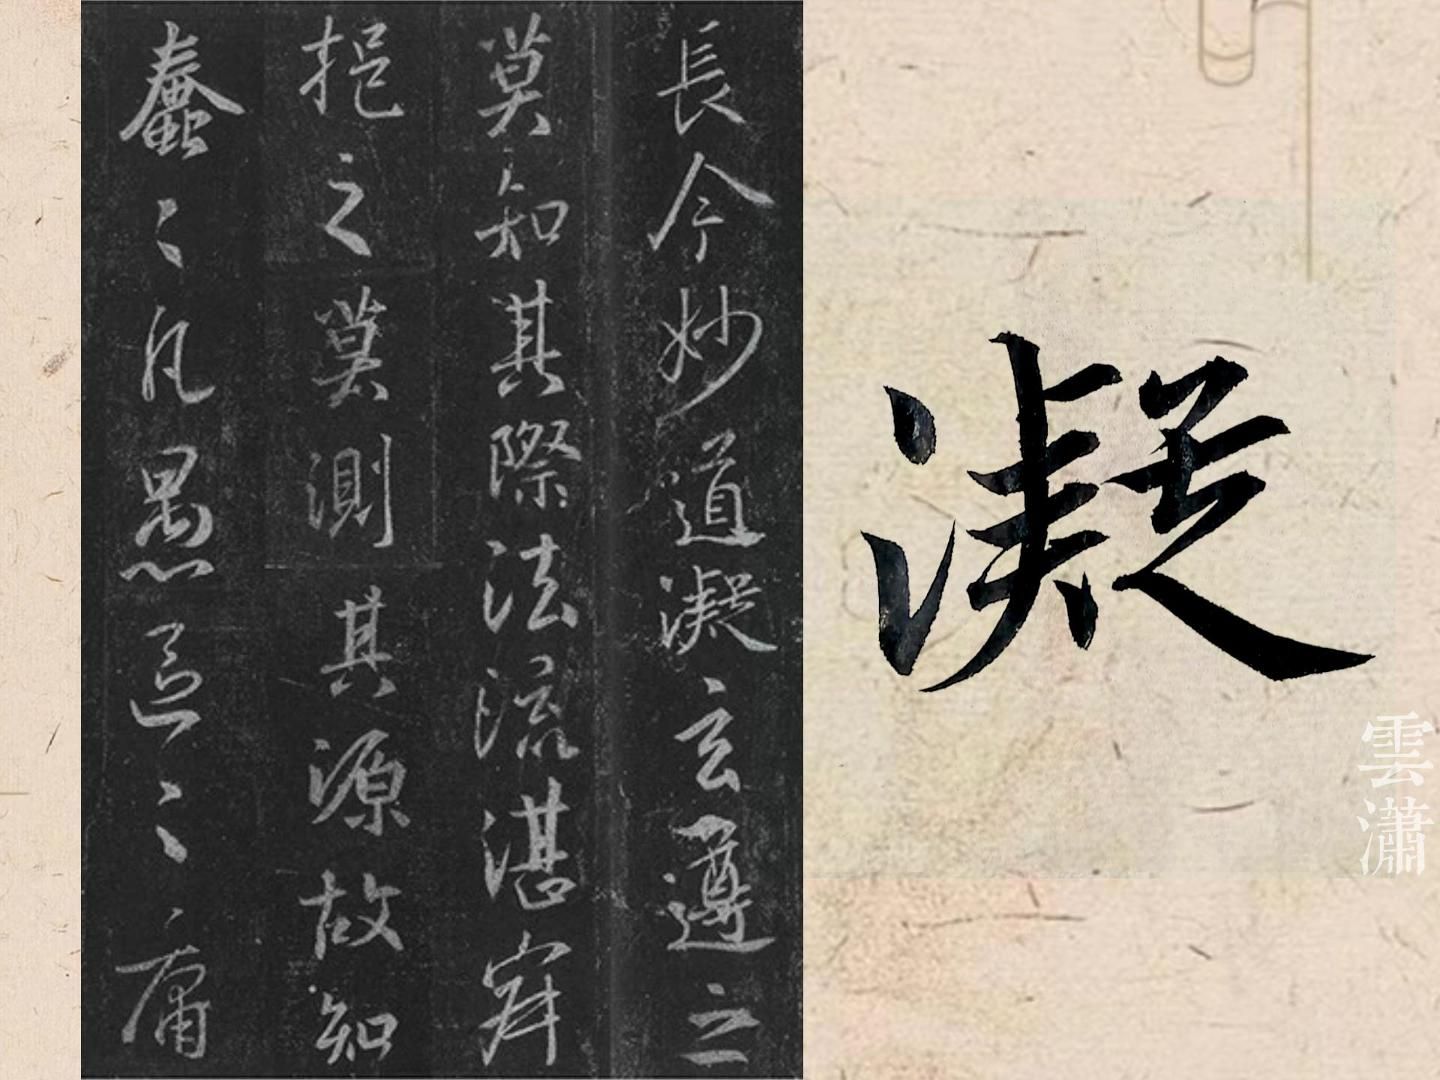 長今妙道凝玄遵之
莫知其際法流湛寂
挹之莫測其源故知
蠢〻凡愚區〻庸
凝
雲瀟